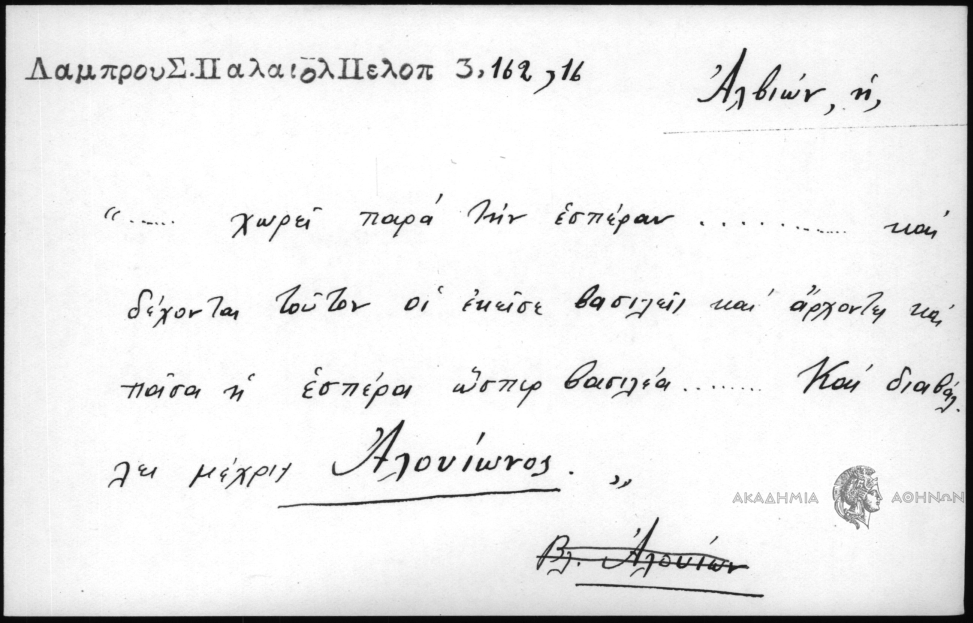 ΛαμπρουΣ.ΠαλαιολΠελοπ 3,162,16
Ἀλβιών, ἡ,
“...... χωρεῖ παρά τήν ἑσπέραν .............. καί
δέχονται τοῦτον οἱ ἐκεῖσε βασιλεῖς καί ἄρχοντες καί
πᾶσα ἡ ἑσπέρα ὥσπερ βασιλέα........ Καί διαβάλ.
λει μέχρις Ἀλουίωνος. „
ΑΚΑΔΗΜΙΑ ΑΘΗΝΩΝ
Βλ. Ἀλουίων